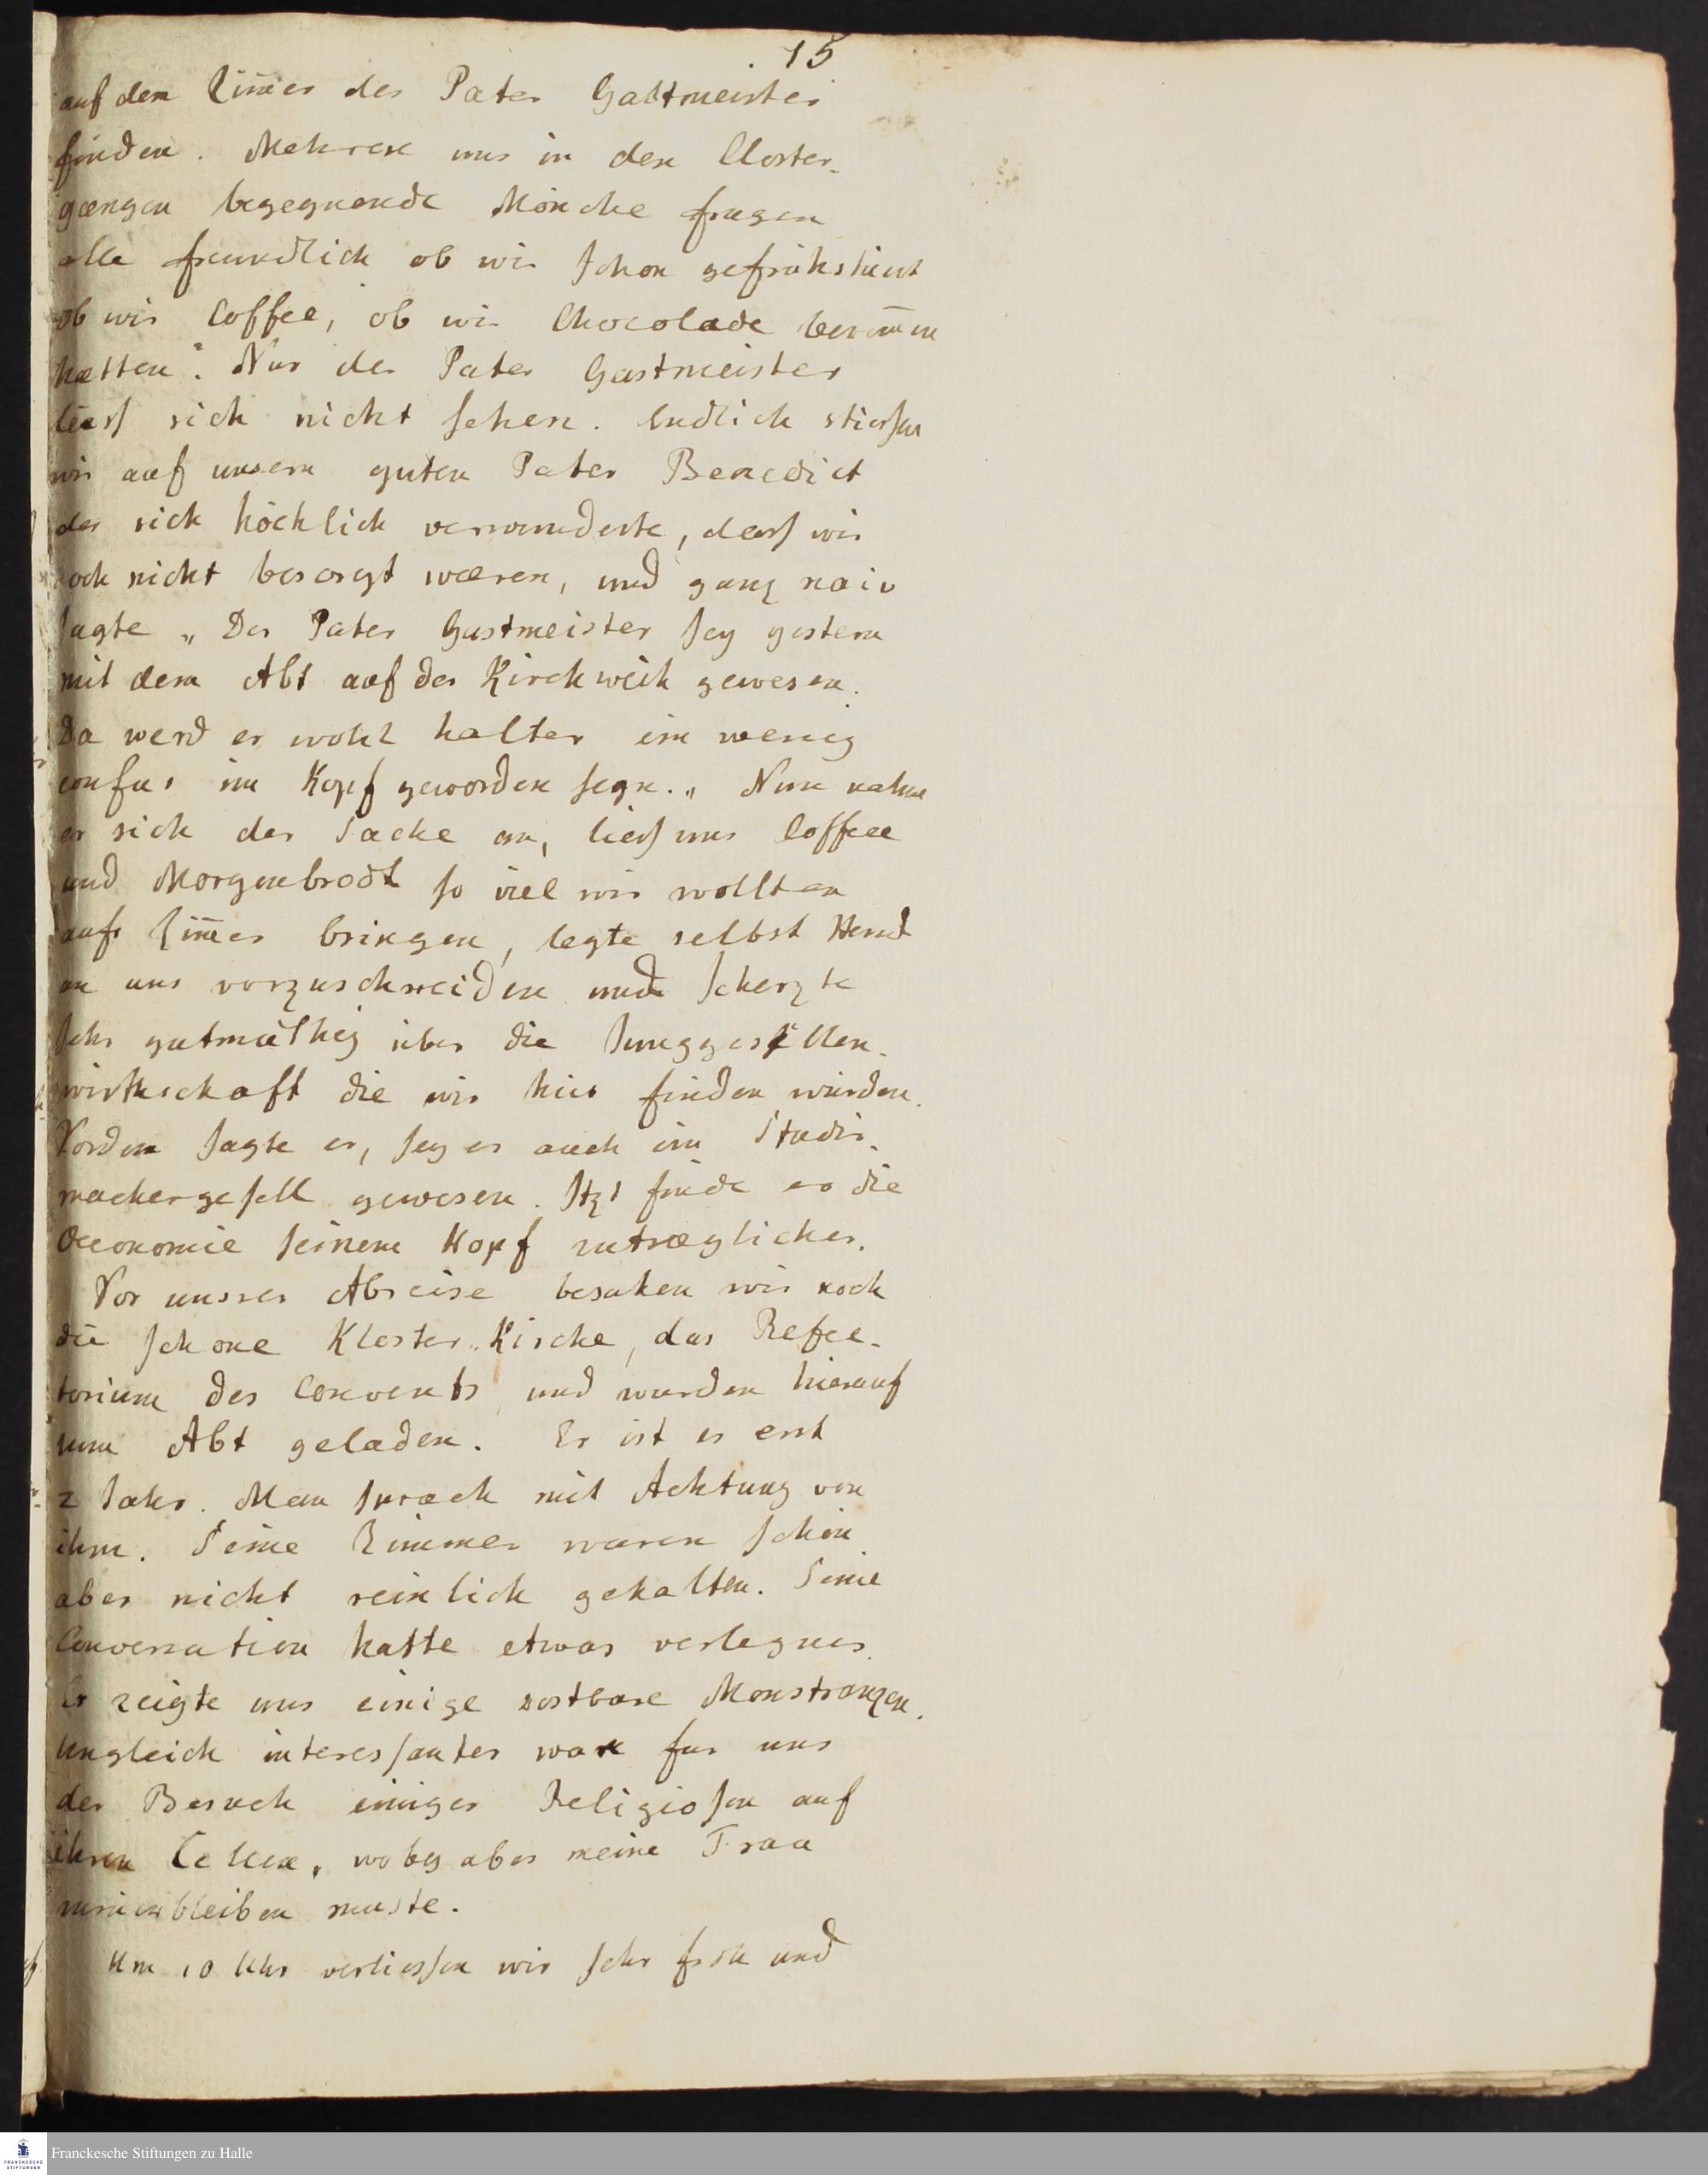 15
auf dem Zim̅er des Pater Gastmeister
finden. Mehrere uns in den Closter-
gængen begegnende Mönche fragen
alle freundlich ob wir schon gefrühstückt
ob wir Coffee, ob wir Chocolade bekom̅en
hætten? Nur der Pater Gastmeister
liess sich nicht sehen. Endlich stiessen
wir auf unsern guten Pater Benedict
der sich höchlich verwunderte, dass wir
noch nicht besorgt wæren, und ganz naiv
sagte „Der Pater Gastmeister sey gestern
mit dem Abt auf der Kirchweih gewesen.
Da werd er wohl halter ein wenig
confus im Kopf geworden seyn.„ Nun nahm
er sich der Sache an, liess uns Coffee
und Morgenbrodt so viel wir wollten
aufs Zim̅er bringen, legte selbst Hand
an uns vorzuschneiden und scherzte
sehr gutmüthig über die Junggesellen-
wirthschaft die wir hier finden würden.
Vordem sagte er, sey er auch ein Studir-
machergesell gewesen. Itzt finde er die
Oeconomie seinem Kopf zutræglicher.
Vor unsrer Abreise besahen wir noch
die schöne Kloster-Kirche, das Refec-
torium des Convents und wurden hierauf
zum Abt geladen. Er ist es erst
2 Jahr. Man sprach mit Achtung von
ihm. Seine Zimmer waren schön
aber nicht reinlich gehalten. Seine
Conversation hatte etwas verlegnes.
Er zeigte uns einige kostbare Monstranzen.
Ungleich interessanter war für uns
der Besuch einiger Religiosen auf
ihren Cellen, wobey aber meine Frau
zurückbleiben muste.
Um 10 Uhr verliessen wir sehr froh und
Franckesche Stiftungen zu Halle
FRANCKESCHE
STIFTUNGEN